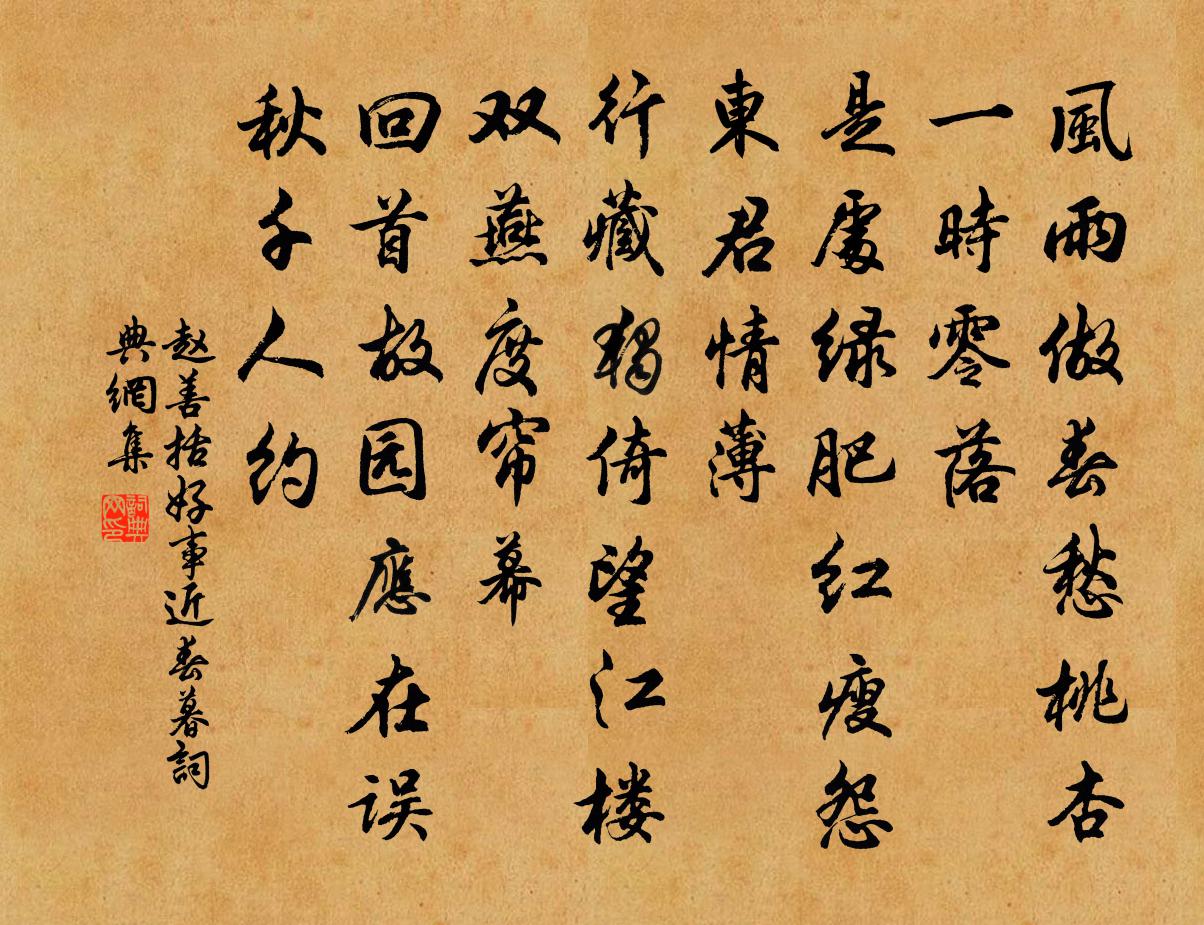 風雨做春愁桃杏
一時零落
是處绿肥红瘦怨
東君情薄
行藏獨倚望江楼
双燕度帘幕
回首故园應在误
秋千人约
赵善括好事近春暮詞
典網集
詞典